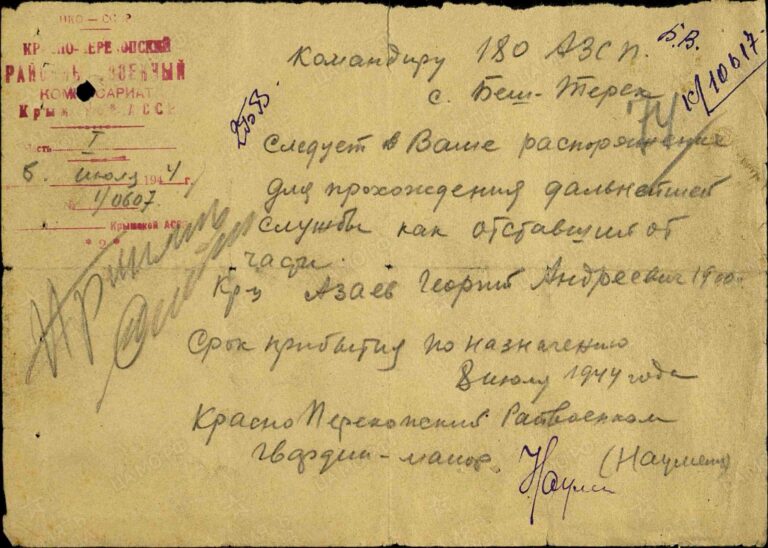 НКО — СССР
КРАСНО-ПЕРЕКОПСКИЙ
РАЙОННЫЙ ВОЕННЫЙ
КОМИССАРИАТ
Крымской АССР
Часть I
6. июля 1944 г.
1/0607.
Крымской АССР
* 2 *
Б.В.
к/10617.
74
Командиру 180 АЗСП.
с. Беш-Терек
Следует в Ваше распоряжение
для прохождения дальнейшей
службы как отставший от
части.
Кр-ц Азаев Георгий Андреевич 1900
Срок прибытия по назначению
8 июля 1944 года
КрасноПерекопский Райвоенком
гвардии-майор (Науменко)